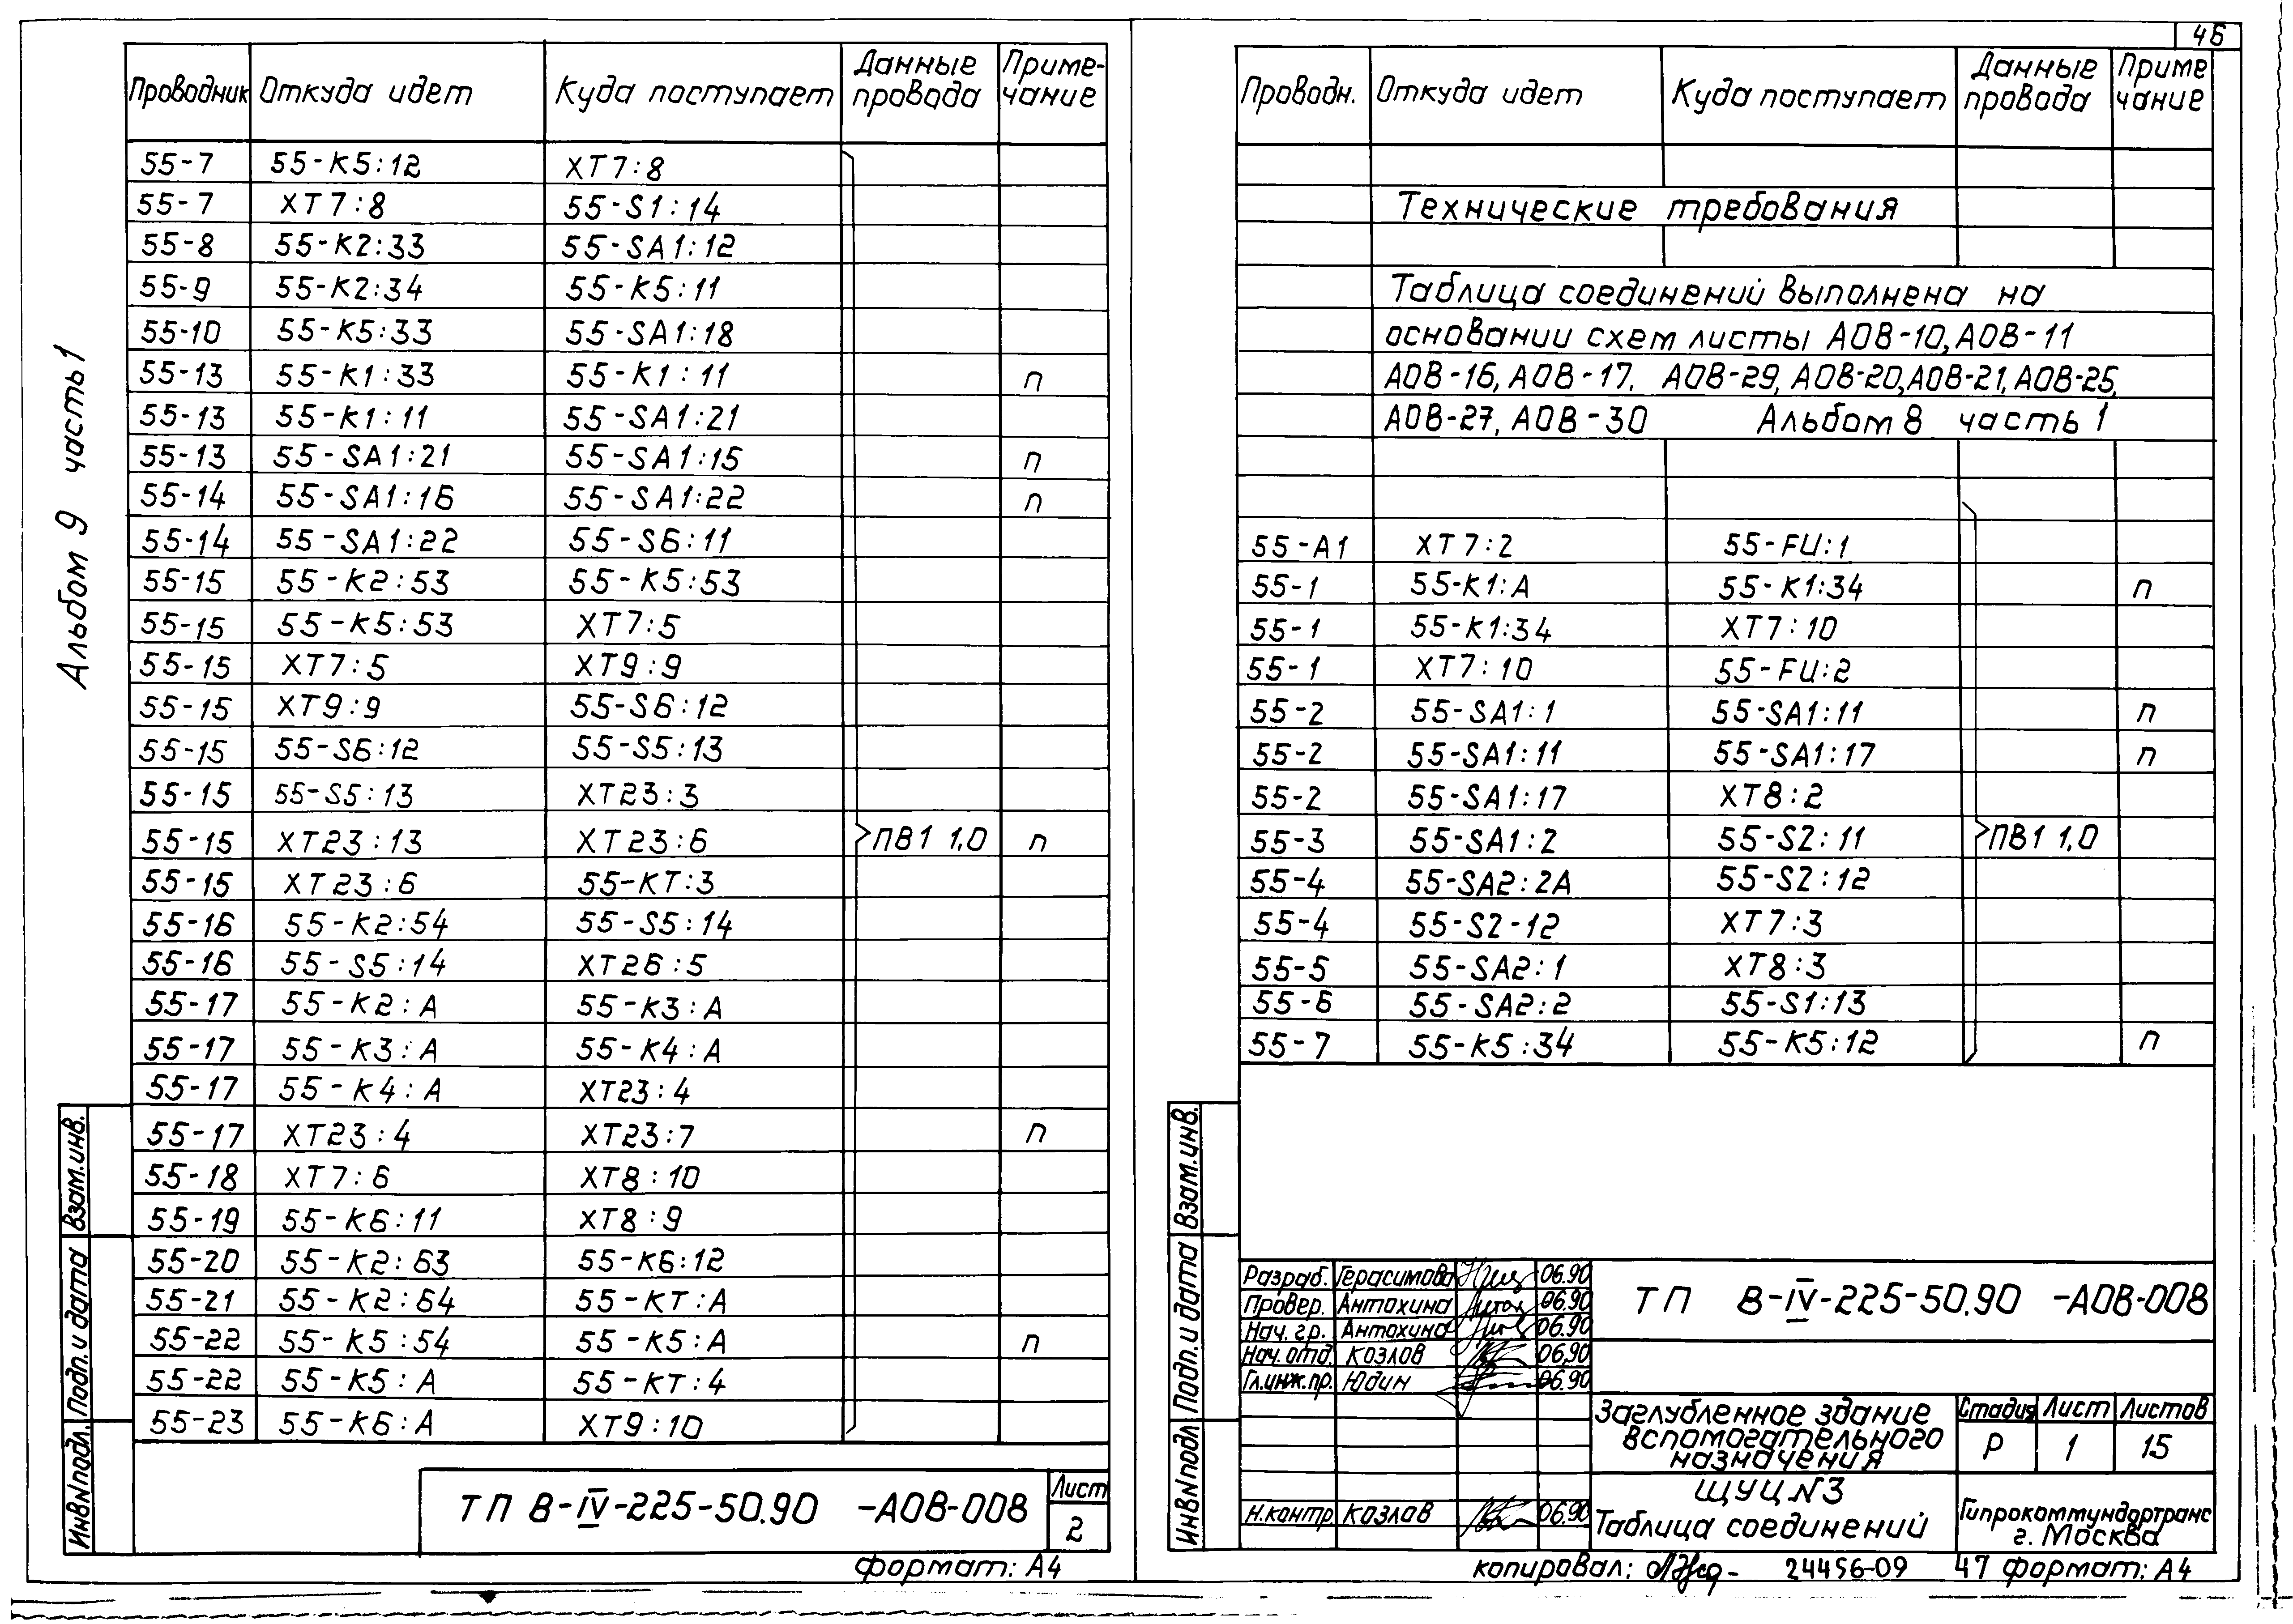 46
Альбом 9 часть 1
Проводник Откуда идет Куда поступает Данные провода Приме-чание
55-7 55-К5:12 ХТ7:8
55-7 ХТ7:8 55-S1:14
55-8 55-К2:33 55-SA1:12
55-9 55-К2:34 55-К5:11
55-10 55-К5:33 55-SA1:18
55-13 55-К1:33 55-К1:11 п
55-13 55-К1:11 55-SA1:21
55-13 55-SA1:21 55-SA1:15 п
55-14 55-SA1:16 55-SA1:22 п
55-14 55-SA1:22 55-S6:11
55-15 55-К2:53 55-К5:53
55-15 55-К5:53 ХТ7:5
55-15 ХТ7:5 ХТ9:9
55-15 ХТ9:9 55-S6:12
55-15 55-S6:12 55-S5:13
55-15 55-S5:13 ХТ23:3
55-15 ХТ23:13 ХТ23:6 ПВ1 1,0 п
55-15 ХТ23:6 55-КТ:3
55-16 55-К2:54 55-S5:14
55-16 55-S5:14 ХТ26:5
55-17 55-К2:А 55-К3:А
55-17 55-К3:А 55-К4:А
55-17 55-К4:А ХТ23:4
55-17 ХТ23:4 ХТ23:7 п
55-18 ХТ7:6 ХТ8:10
55-19 55-К6:11 ХТ8:9
55-20 55-К2:63 55-К6:12
55-21 55-К2:64 55-КТ:А
55-22 55-К5:54 55-К5:А п
55-22 55-К5:А 55-КТ:4
55-23 55-К6:А ХТ9:10
Взам.инв.
Подп. и дата
Инв N подл.
ТП В-IV-225-50.90 -АОВ-008
Лист
2
формат: А4
Проводн. Откуда идет Куда поступает Данные провода Приме чание
Технические требования
Таблица соединений выполнена на
основании схем листы АОВ-10, АОВ-11
АОВ-16, АОВ-17, АОВ-29, АОВ-20, АОВ-21, АОВ-25,
АОВ-27, АОВ-30 Альбом 8 часть 1
55-А1 ХТ7:2 55-FU:1
55-1 55-К1:А 55-К1:34 п
55-1 55-К1:34 ХТ7:10
55-1 ХТ7:10 55-FU:2
55-2 55-SA1:1 55-SA1:11 п
55-2 55-SA1:11 55-SA1:17 п
55-2 55-SA1:17 ХТ8:2
55-3 55-SA1:2 55-S2:11 ПВ1 1,0
55-4 55-SA2:2А 55-S2:12
55-4 55-S2-12 ХТ7:3
55-5 55-SA2:1 ХТ8:3
55-6 55-SA2:2 55-S1:13
55-7 55-К5:34 55-К5:12 п
Взам.инв.
Подп. и дата
Инв N подл
Разраб. Герасимова 06.90
Провер. Антохина 06.90
Нач. гр. Антохина 06.90
Нач. отд. Козлов 06.90
Гл.инж.пр. Юдин 06.90
Н.контр. Козлов 06.90
ТП В-IV-225-50.90 -АОВ-008
Заглубленное здание
вспомогательного
назначения
Стадия Лист Листов
Р 1 15
ЩУЦ N3
Таблица соединений
Гипрокоммундортранс
г. Москва
копировал: 24456-09 47 формат: А4